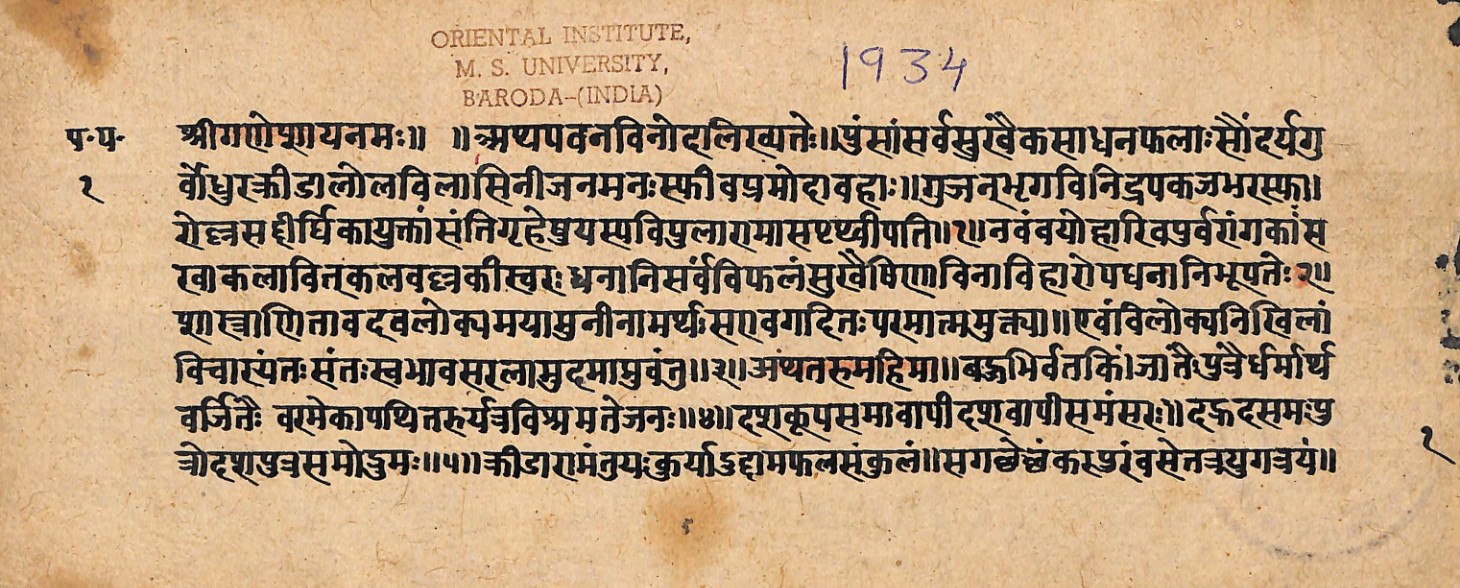 ORIENTAL INSTITUTE,
M. S. UNIVERSITY,
BARODA-(INDIA)
1934
प॰प॰
१
श्रीगणेशायनमः॥ ॥अथपवनविनोदलिख्यतेः॥पुंसांसर्वसुखैकसाधनफलाःसौंदर्यगु
र्वोधुरक्रीडालोलविलासिनीजनमनःस्फीवप्रमोदावहाः॥गुजनभृगविनिद्रपकजभरस्फा॥
रोल्लसद्दीर्घिकायुक्तांसंतिगृहेषुयस्यविपुलारामासपृथ्वीपति॥१॥नवंवयोहारिवपुर्वरांगकांस
खाकलावितकलवल्लकीस्वरः धनानिसर्वंविफलंसुखैषिणोविनाविहारोपधनानिभूपतेः२॥
शास्त्राणितावदवलोक्यमयामुनीनामर्थःसएावगदितःपरमात्ममुक्त्या॥एवंविलोक्यनिखिलां
विचार्यंतःसंतःस्वभावसरलामुदमाप्नुवंतु॥३॥अथतरुमहिमा॥बहुभिर्वतकिं।जातैपुत्रैर्धर्मार्थ
वर्जितैः वरमेकापथितरुर्यत्रविश्रमतेजनः॥४॥दशकूपसमावापीदशवापीसमंसरः॥दह्रदसमःपु
त्रोदृशपुत्रसमोद्रुमः॥५॥क्रीडारामंतुयःकुर्याउद्दामफलसंकुलं॥सगछेछंकरपुरंवसेतत्रयुगत्रयं॥
१